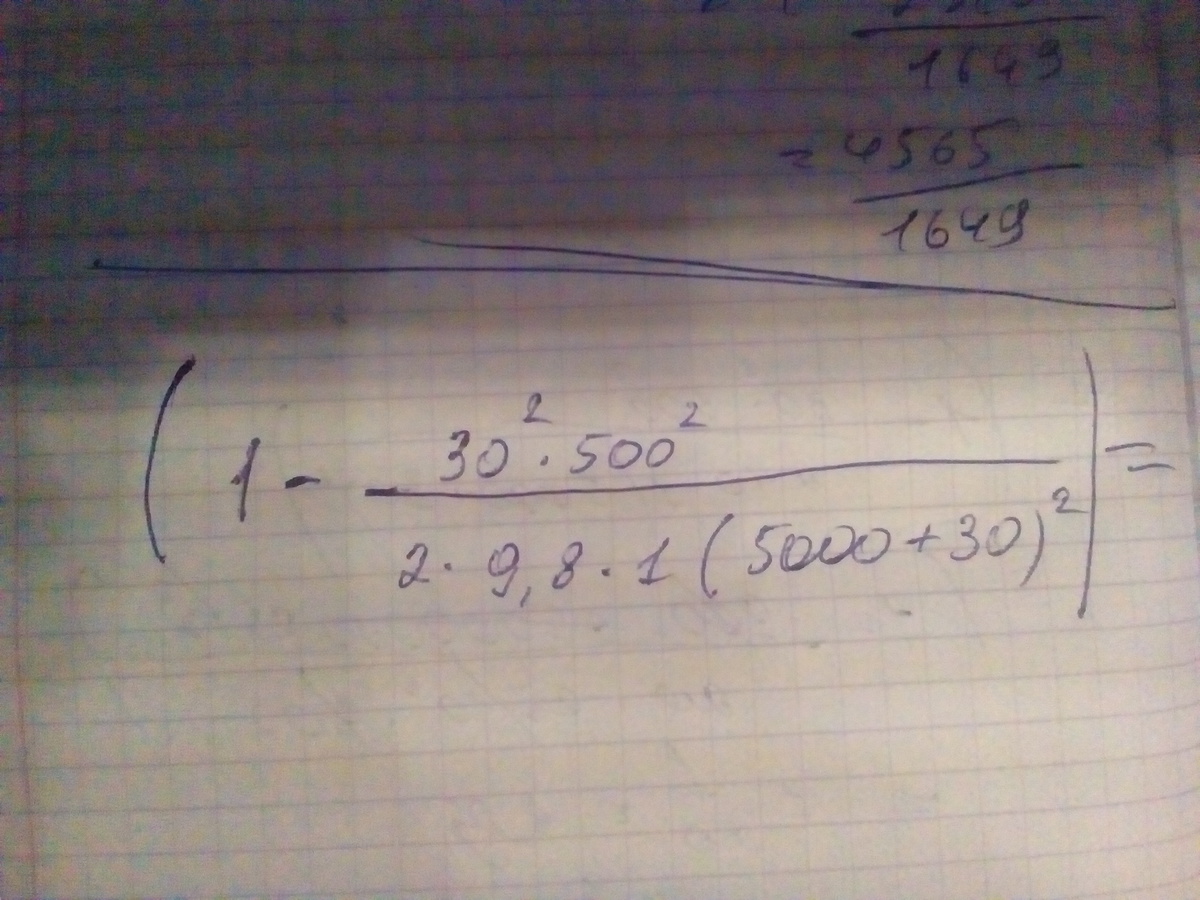 1649
= 4565
1649
(1 - 30² · 500²
2 · 9,8 · 1 (5000 + 30)²) =